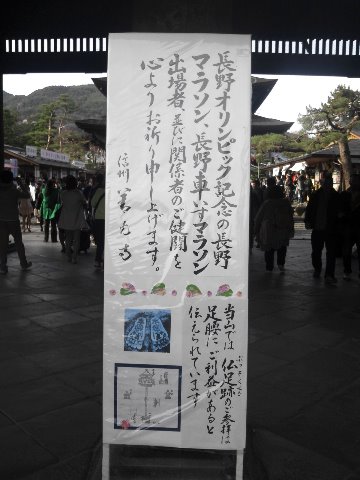 長野オリンピック記念の長野
マラソン、長野車いすマラソン
出場者、並びに関係者のご健闘を
心よりお祈り申し上げます。
信州 善光寺
当山では 仏足跡のご参拝は
足腰にご利益があると
伝えられています